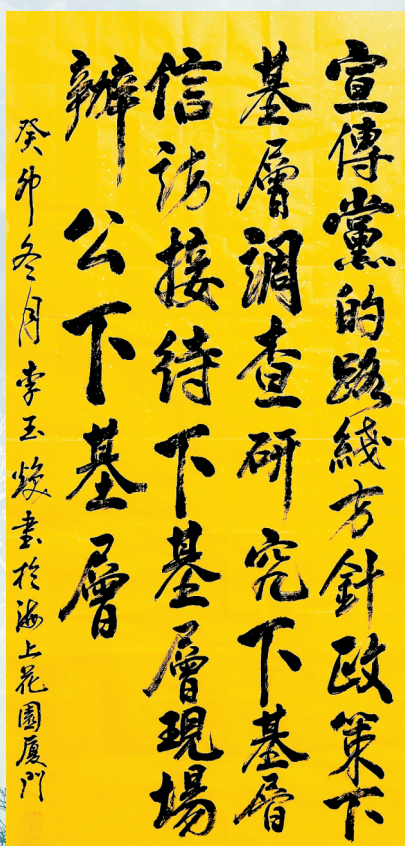 宣傳黨的路綫方針政策下
基層調查研究下基層
信訪接待下基層現場
辦公下基層
癸卯冬月李玉焕書於海上花園厦門